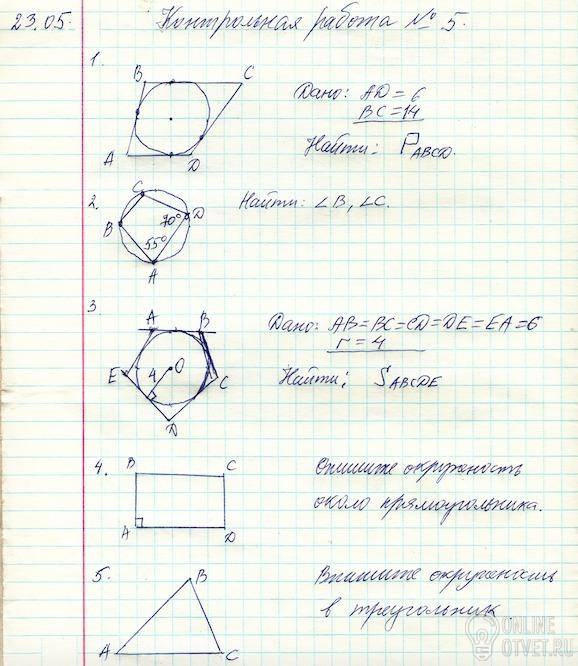 23.05. Контрольная работа № 5.
1.
B C
A D
Дано: AD = 6
BC = 14
Найти: P ABCD.
2.
C
B
D
70°
55°
A
Найти: ∠B, ∠C.
3.
A B
E 4 O C
D
Дано: AB=BC=CD=DE=EA=6
r = 4
Найти: S ABCDE
4.
B C
A D
Опишите окружность
около прямоугольника.
5.
B
A C
Впишите окружность
в треугольник
ONLINE
OTVET.RU